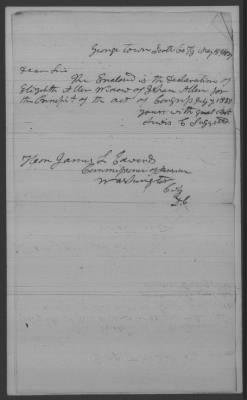 George Town Scott Co Ky May
Dear Sir
The Enclosed is the declaration of
Elizabeth Allen Widow of Allen for
the Benefit of the act of Congress July 7 1838
yours with great
Lewis C Suggett
Hon James L Edwards
Commissioner of Pension
Washington
City
D.C